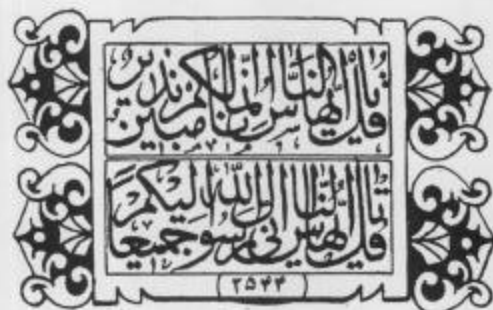 قل يا ايها الناس انما انا لكم نذير مبين
قل يا ايها الناس اني رسول الله اليكم جميعا
۲۵۴۴